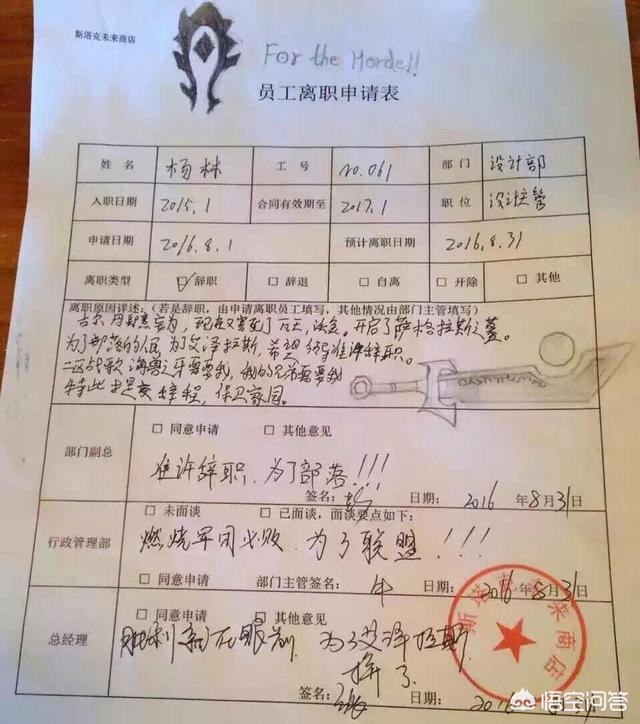 斯塔克未来商店
For the Horde!!
员工离职申请表
姓名 杨林 工号 no.061 部门 设计部
入职日期 2015.1 合同有效期至 2017.1 职位 设计主管
申请日期 2016.8.1 预计离职日期 2016.8.31
离职类型 ☑辞职 □辞退 □自离 □开除 □其他
离职原因详述:(若是辞职,由申请离职员工填写,其他情况由部门主管填写)
古尔丹 开启了萨格拉斯之墓。
为了部落的人民 为了艾泽拉斯,希望领导准许辞职。
二区战歌 海兽之牙需要我,我的兄弟需要我
特此提交辞程,保卫家园。
部门副总
□ 同意申请 □ 其他意见
准许辞职、为了部落!!!
签名: 日期: 2016 年8月31日
行政管理部
□ 未面谈 □ 已面谈,面谈要点如下:
燃烧军团必败、为了联盟!!!
□ 同意申请 部门主管签名: 日期: 2016年8月31日
总经理
□ 同意申请 □ 其他意见
胜利就在眼前、为艾泽拉斯
拚了
签名:
斯塔克未来商店
悟空问答